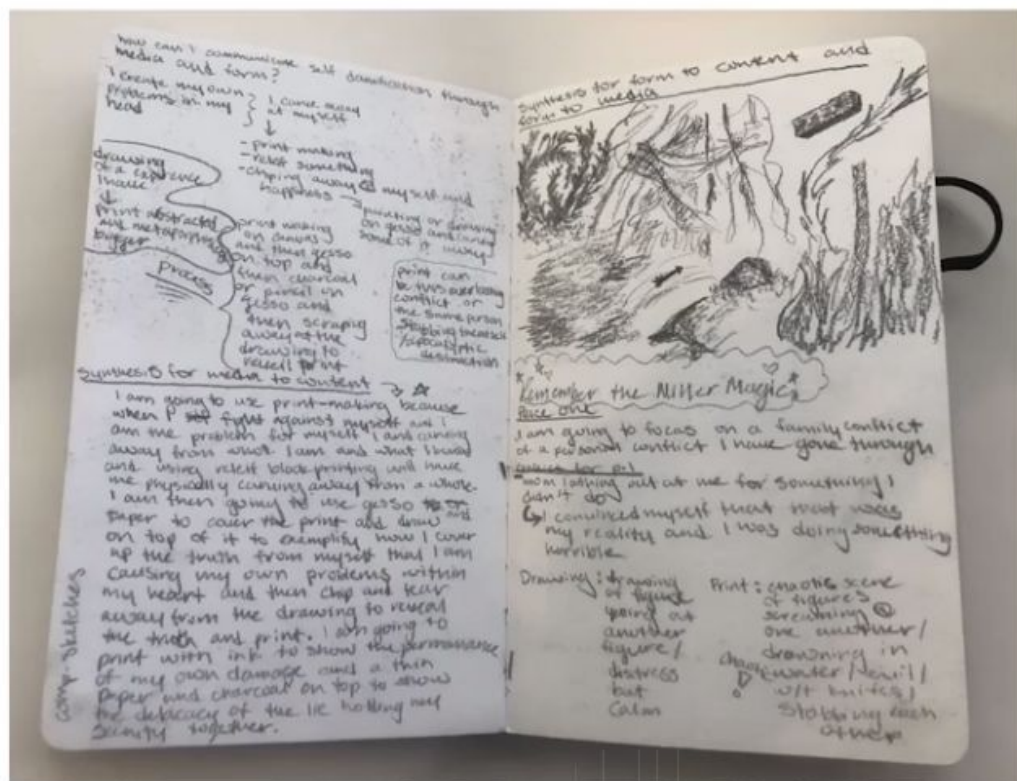 How can I communicate self damification through
media and form?
I create my own
problems in my
head
I carve away
at myself
- print making
- relief something
- chiping away @ myself and
happiness
painting or drawing
on gesso and carve
some of it away
drawing
of a experience
I have
print abstracted
and metaphoric
bigger
Process
print making
on canvas
and then gesso
on top and
then charcoal
or pencil on
gesso and
then scraping
away at the
drawing to
reveil print
print can
be this overlooking
conflict or
the same person
stabbing themself
/apocalyptic
distruction
Synthesis for media to content
I am going to use print-making because
when I fight against myself and I
am the problem for myself I and carving
away from what I am and what I have
and using relief block printing will have
me physically carving away from a whole.
I am then going to use gesso and
paper to cover the print and draw
on top of it to exemplify how I cover
up the truth from myself that I am
causing my own problems within
my heart and then chip and tear
away from the drawing to reveal
the truth and print. I am going to
print with ink to show the permanance
of my own damage and a thin
paper and charcoal on top to show
the delicacy of the lie holding my
sanity together.
comp. sketches
Synthesis for form to content and
form to media
Remember the Miller Magic
Piece one
I am going to focus on a family conflict
of a personal conflict I have gone through
mom lathing out at me for something I
didn't do
I convinced myself that that was
my reality and I was doing something
horrible
Drawing: drawing
of figure
going at
another
figure/
distress
but
calm
Print: chaotic scene
of figures
screaming @
one another/
drowning in
water/evil/
w/t knifes/
stabbing each
other
chaotic